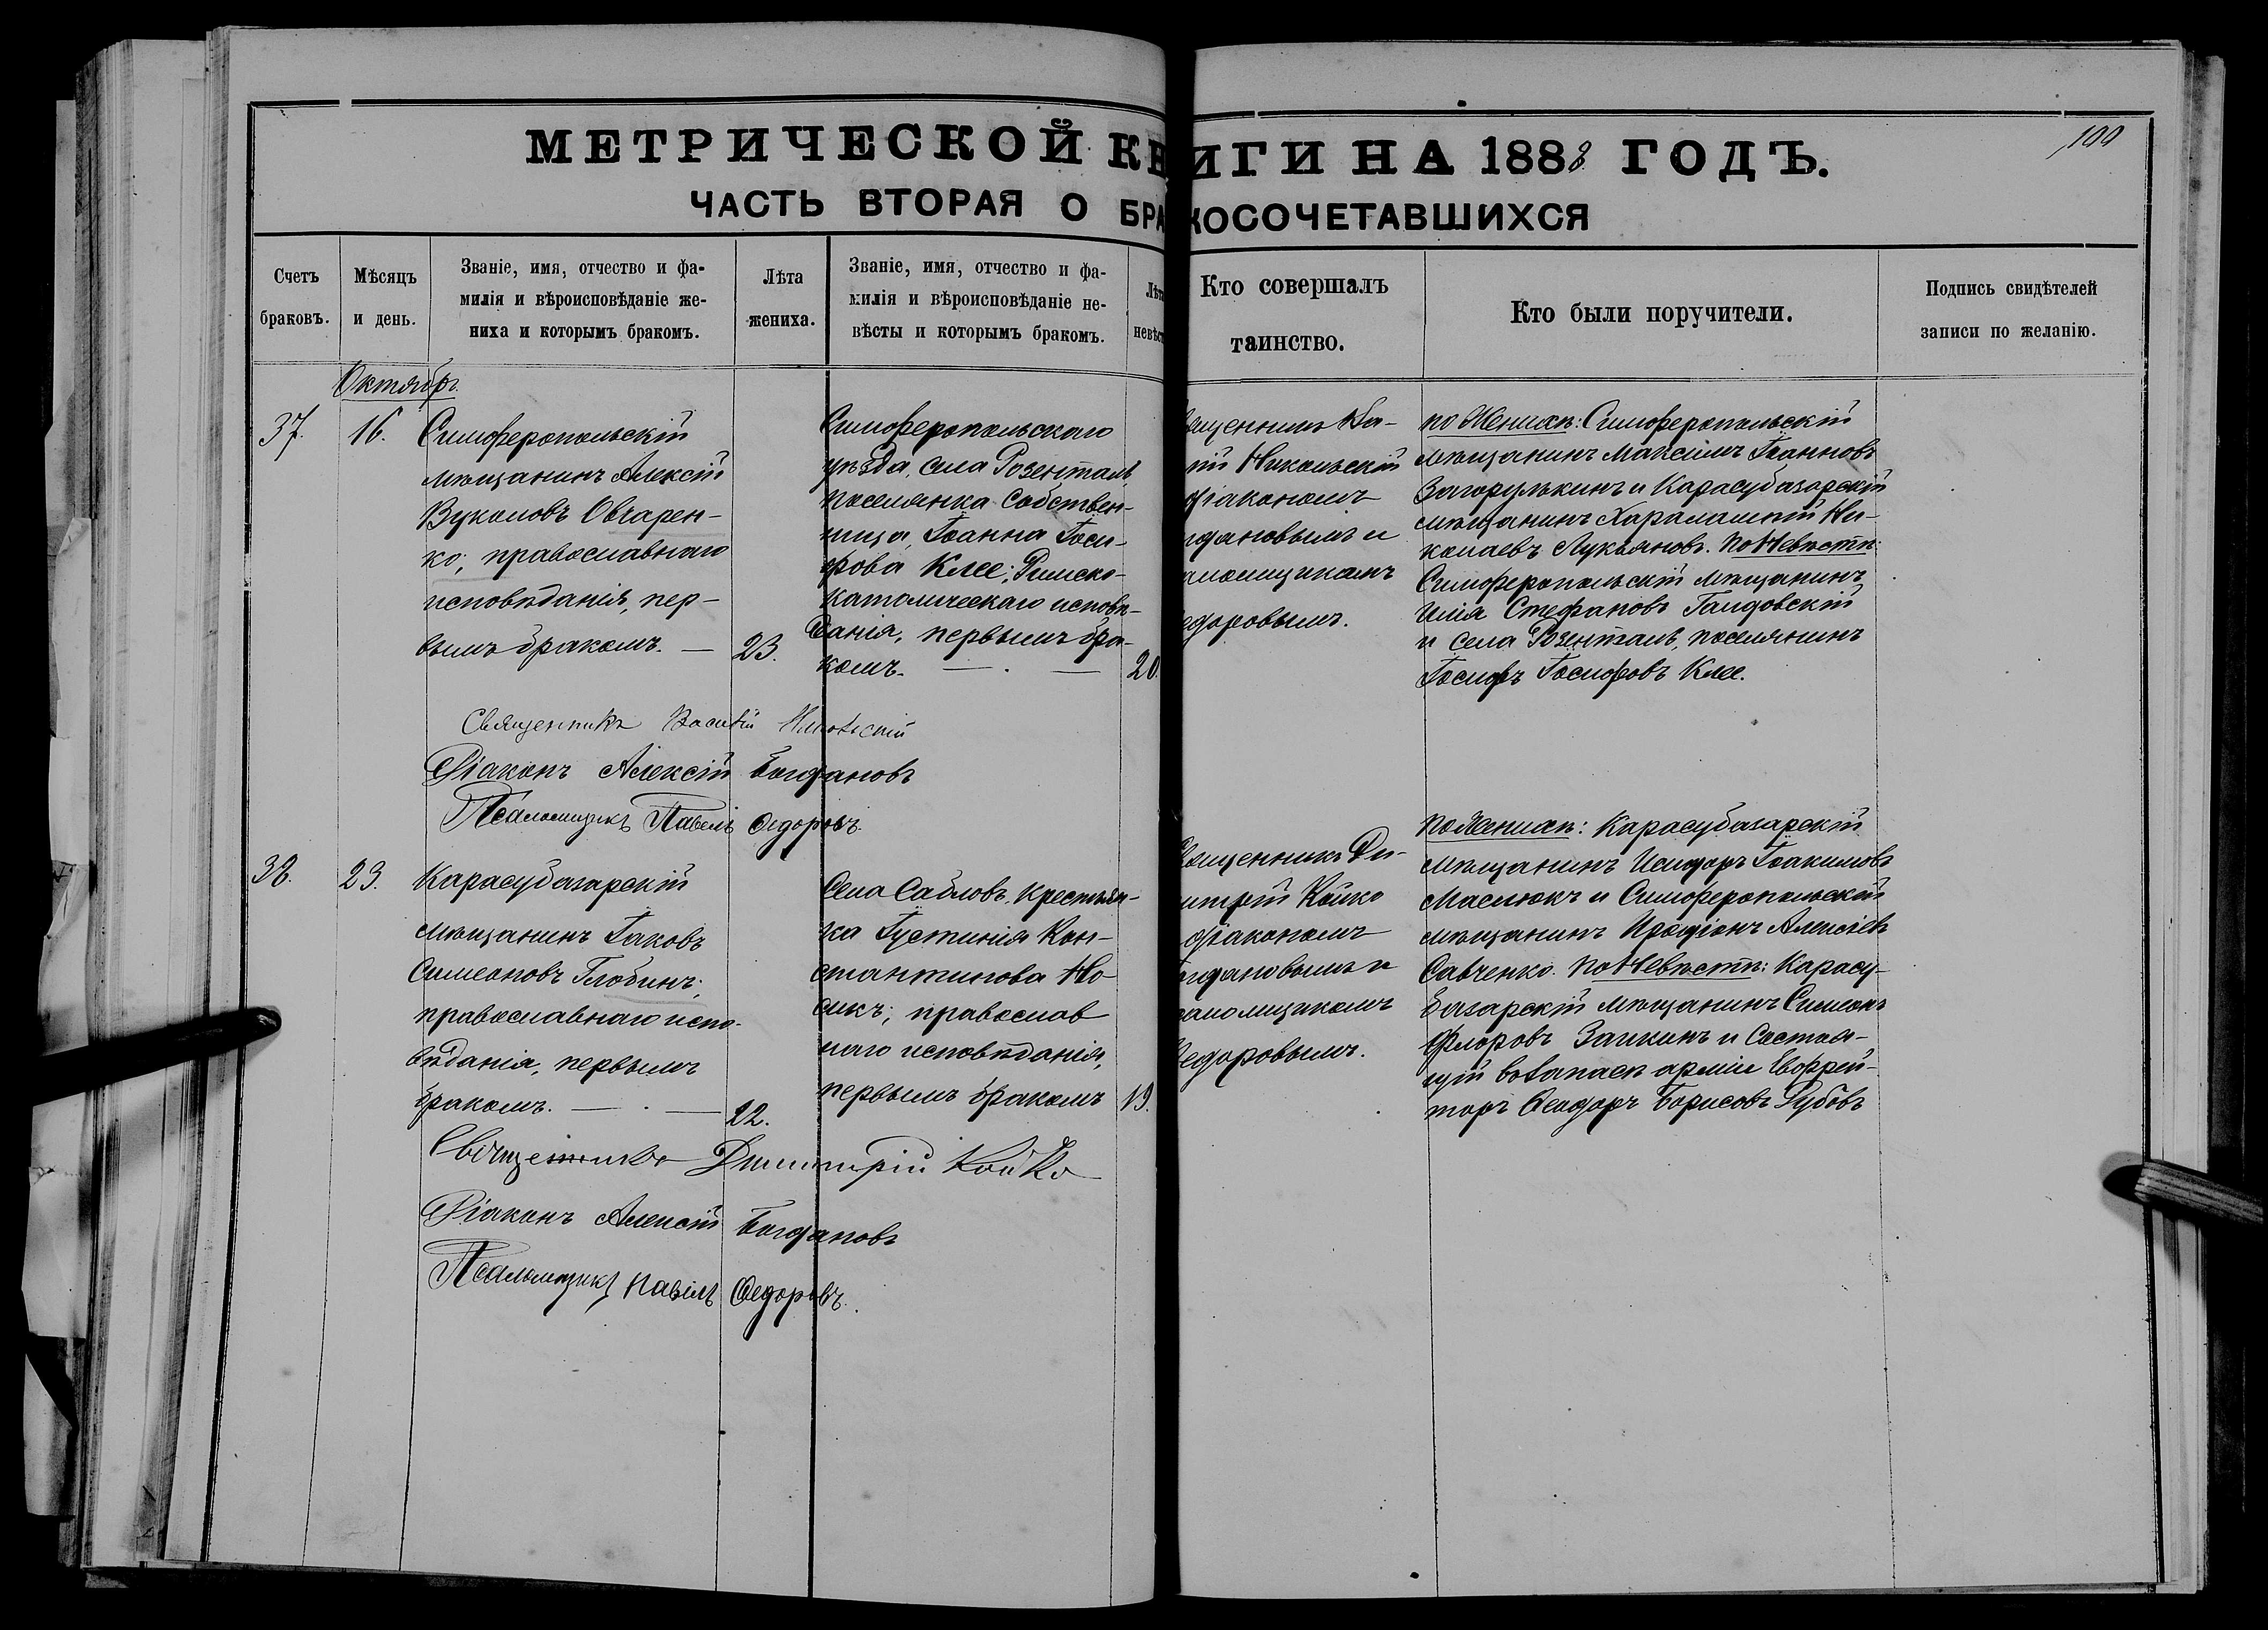 МЕТРИЧЕСКОЙ КНИГИ НА 1888 ГОДЪ.
100
ЧАСТЬ ВТОРАЯ О БРАКОСОЧЕТАВШИХСЯ
Счетъ браковъ.
Мѣсяцъ и день.
Званіе, имя, отчество и фа-
милія и вѣроисповѣданіе же-
ниха и которымъ бракомъ.
Лѣта жениха.
Званіе, имя, отчество и фа-
милія и вѣроисповѣданіе не-
вѣсты и которымъ бракомъ.
Лѣта невѣст
Кто совершалъ
таинство.
Кто были поручители.
Подпись свидѣтелей
записи по желанію.
Октябрь
37.
16.
Симферопольскій
мѣщанинъ Алексій
Вуколовъ Овчарен-
ко, православнаго
исповѣданія, пер-
вымъ бракомъ. —
23.
Симферопольскаго
уѣзда, села Розенталь
поселянка собствен-
ница, Іоанна Іоси-
фова Клее; Римско-
католическаго исповѣ-
данія, первымъ бра-
комъ. — . —
20.
ященникъ Ва-
ій Никольскій
діакономъ
гдановымъ и
аломщикомъ
едоровымъ.
по Женихѣ: Симферопольскій
мѣщанинъ Максимъ Іоанновъ
Загорулькинъ и Карасубазарскій
мѣщанинъ Харалампій Ни-
колаевъ Лукьяновъ. По Невѣстѣ:
Симферопольскій мѣщанинъ
Илія Стефановъ Галдовскій
и села Розенталь, поселянинъ
Іосифъ Іосифовъ Клее.
Священникъ Василій Никольскій
Діаконъ Алексій Богдановъ
Псаломщикъ Павелъ Ѳедоровъ.
38.
23.
Карасубазарскій
мѣщанинъ Іаковъ
Симеоновъ Глобинъ;
православнаго испо-
вѣданія, первымъ
бракомъ. — . —
22.
Села Сабловъ, крестьян-
ка Іустинія Кон-
стантинова Но-
сикъ; православ
наго исповѣданія,
первымъ бракомъ
19.
вященникъ Ди-
митрій Койко
діакономъ
огдановымъ и
саломщикомъ
Ѳедоровымъ.
по Женихѣ: Карасубазарскій
мѣщанинъ Исидоръ Іоакимовъ
Маслюкъ и Симферопольскій
мѣщанинъ Иродіонъ Алексіевъ
Савченко. По Невѣстѣ: Карасу-
базарскій мѣщанинъ Симеонъ
Флоровъ Заикинъ и состоя-
щій въ запасѣ арміи Ефрей-
торъ Ѳеодоръ Борисовъ Рубовъ
Священникъ Димитрій Койко
Діаконъ Алексій Богдановъ
Псаломщикъ Павелъ Ѳедоровъ.